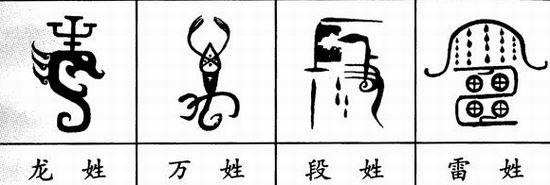 龙姓 万姓 段姓 雷姓